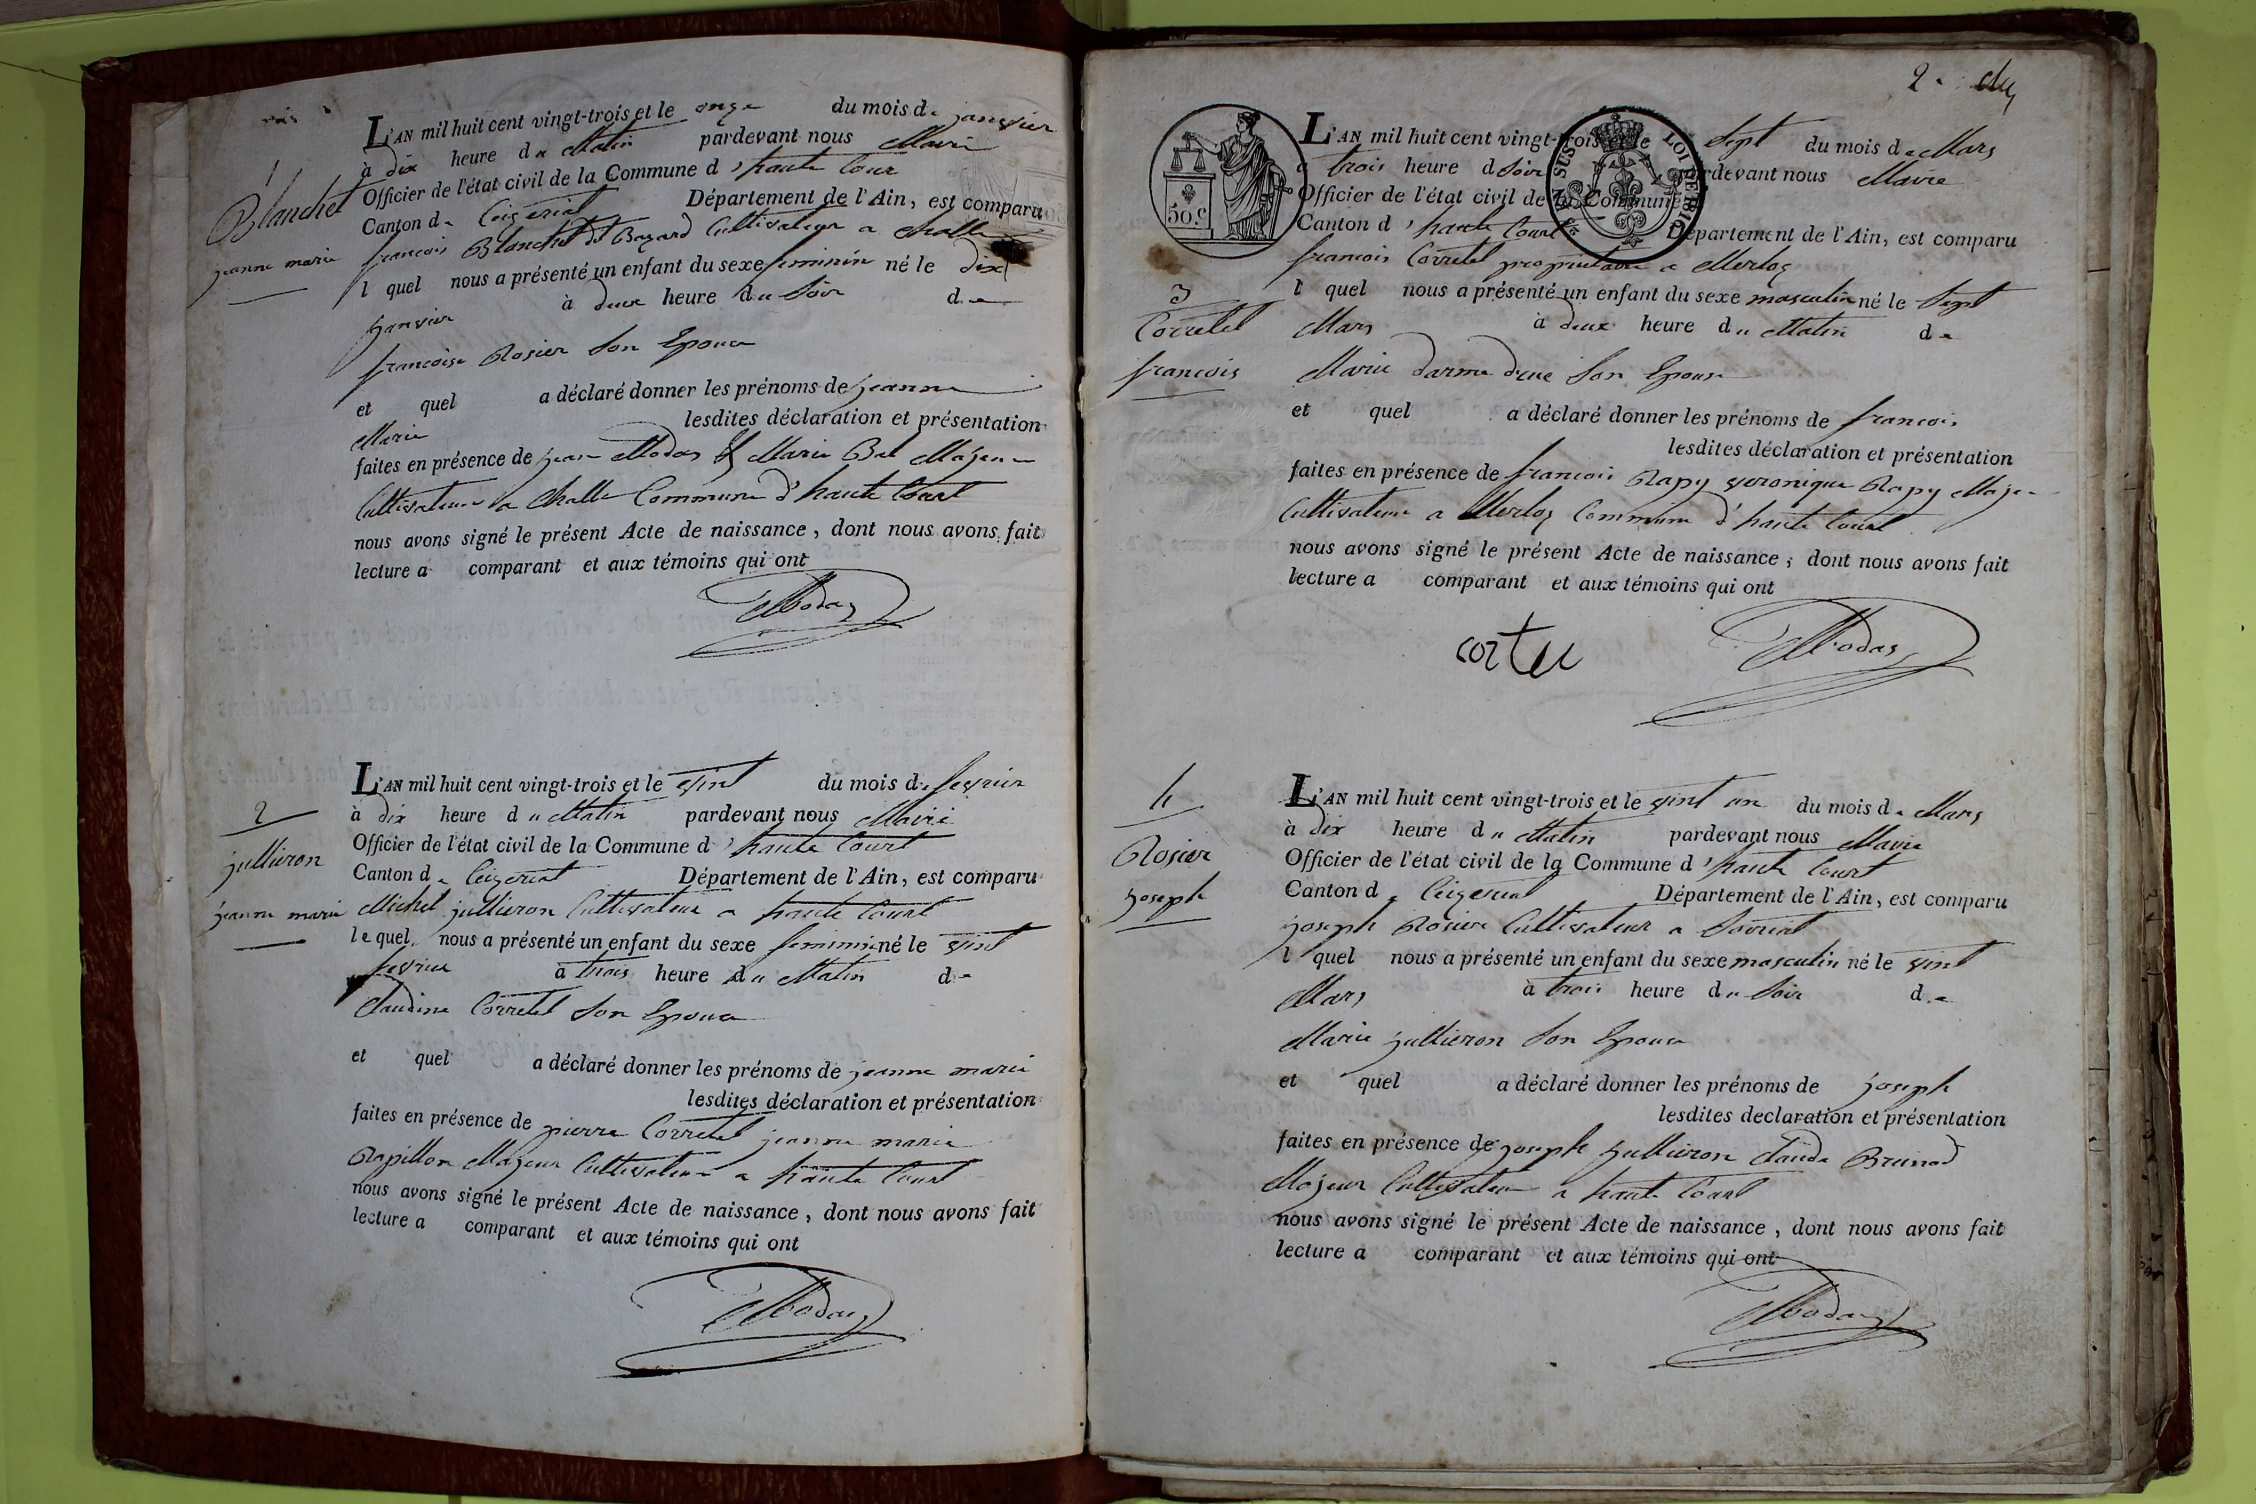 1
Blanchet
jeanne marie
L'AN mil huit cent vingt-trois et le onze du mois de janvier
à dix heure du Matin pardevant nous Maire
Officier de l'état civil de la Commune d'haute Cour
Canton de Ceizeriat Département de l'Ain, est comparu
francois Blanchet dt Bazard Cultivateur a Challe
l quel nous a présenté un enfant du sexe feminin né le dix
janvier à deux heure du Soir de
francoise Rosier Son Epouse
et quel a déclaré donner les prénoms de jeanne
Marie lesdites déclaration et présentation
faites en présence de jean Modas & Marie Bal Majeur
Cultivateur a Challe Commune d'haute Court
nous avons signé le présent Acte de naissance, dont nous avons fait
lecture a comparant et aux témoins qui ont
Modas
2
jullieron
jeanne marie
L'AN mil huit cent vingt-trois et le vint du mois de fevrier
à dix heure du Matin pardevant nous Maire
Officier de l'état civil de la Commune d'haute Court
Canton de Ceizeriat Département de l'Ain, est comparu
Michel jullieron Cultivateur a haute Court
le quel nous a présenté un enfant du sexe feminin né le vint
fevrier à trois heure du Matin de
Claudine Corretel Son Epouse
et quel a déclaré donner les prénoms de jeanne marie
lesdites déclaration et présentation
faites en présence de pierre Corretel jeanne marie
Rapillon Majeur Cultivateur a haute Court
nous avons signé le présent Acte de naissance, dont nous avons fait
lecture a comparant et aux témoins qui ont
Modas
2
50 c.
LOI DE 1816
EN SUS
3
Corretel
francois
L'AN mil huit cent vingt-trois et le Sept du mois de Mars
à trois heure d Soir pardevant nous Maire
Officier de l'état civil de la Commune
Canton d'haute Court Département de l'Ain, est comparu
francois Corretel proprietaire a Merloz
l quel nous a présenté un enfant du sexe masculin né le Sept
Mars à deux heure du Matin de
Marie Son Epouse
et quel a déclaré donner les prénoms de francois
lesdites déclaration et présentation
faites en présence de francois Rapy veronique Rapy Majeur
Cultivateur a Merloz Commune d'haute Court
nous avons signé le présent Acte de naissance, dont nous avons fait
lecture a comparant et aux témoins qui ont
Modas
4
Rosier
joseph
L'AN mil huit cent vingt-trois et le vint un du mois de Mars
à dix heure du Matin pardevant nous Maire
Officier de l'état civil de la Commune d'haute Court
Canton de Ceizeriat Département de l'Ain, est comparu
joseph Rosier Cultivateur a
l quel nous a présenté un enfant du sexe masculin né le vint
Mars à trois heure du Soir de
Marie jullieron Son Epouse
et quel a déclaré donner les prénoms de joseph
lesdites declaration et présentation
faites en présence de joseph jullieron Claude Brunod
Majeur Cultivateur a haute Court
nous avons signé le présent Acte de naissance, dont nous avons fait
lecture a comparant et aux témoins qui ont
Modas